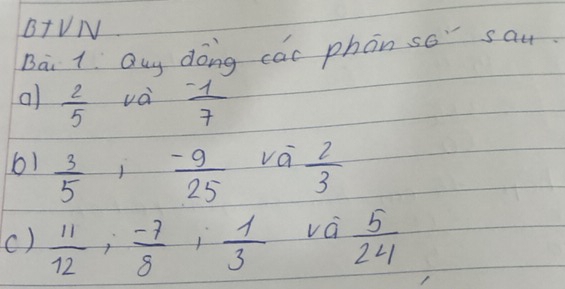 BTVN.
Bài 1. Quy đồng các phân số sau.
a) 2/5 và -1/7
b) 3/5 ; -9/25 và 2/3
c) 11/12 ; -7/8 ; 1/3 và 5/24